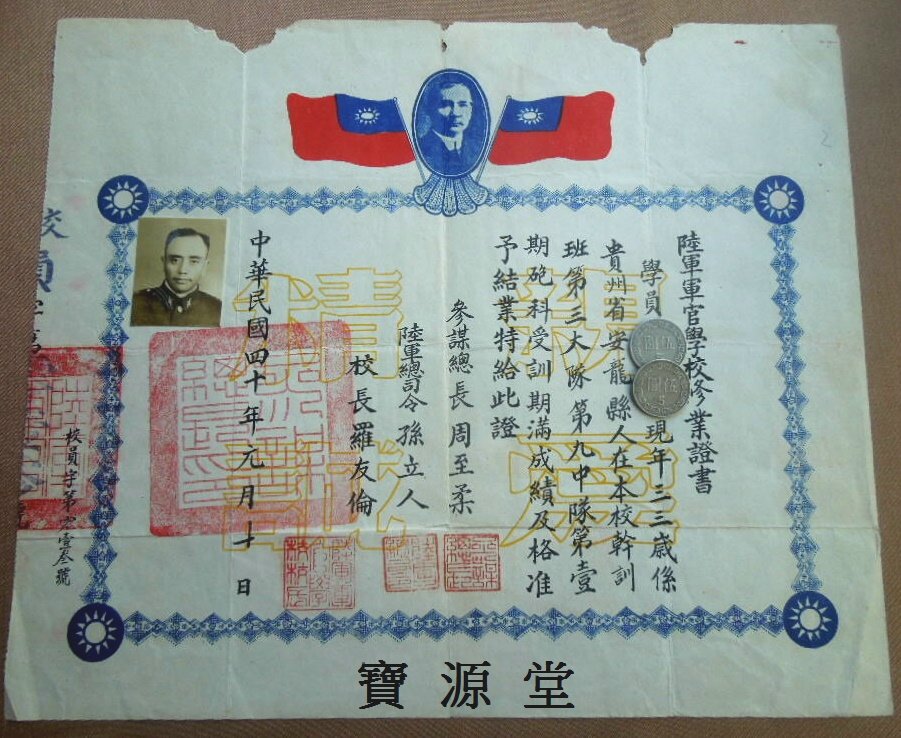 陸軍軍官學校修業證書
學員 現年三三歲係
貴州省安龍縣人在本校幹訓
班第三大隊第九中隊第壹
期砲科受訓期滿成績及格准
予結業特給此證
參謀總長周至柔
陸軍總司令孫立人
校長羅友倫
中華民國四十年元月十日
校員字第零壹叁號
校員字第
親愛
精誠
寶源堂